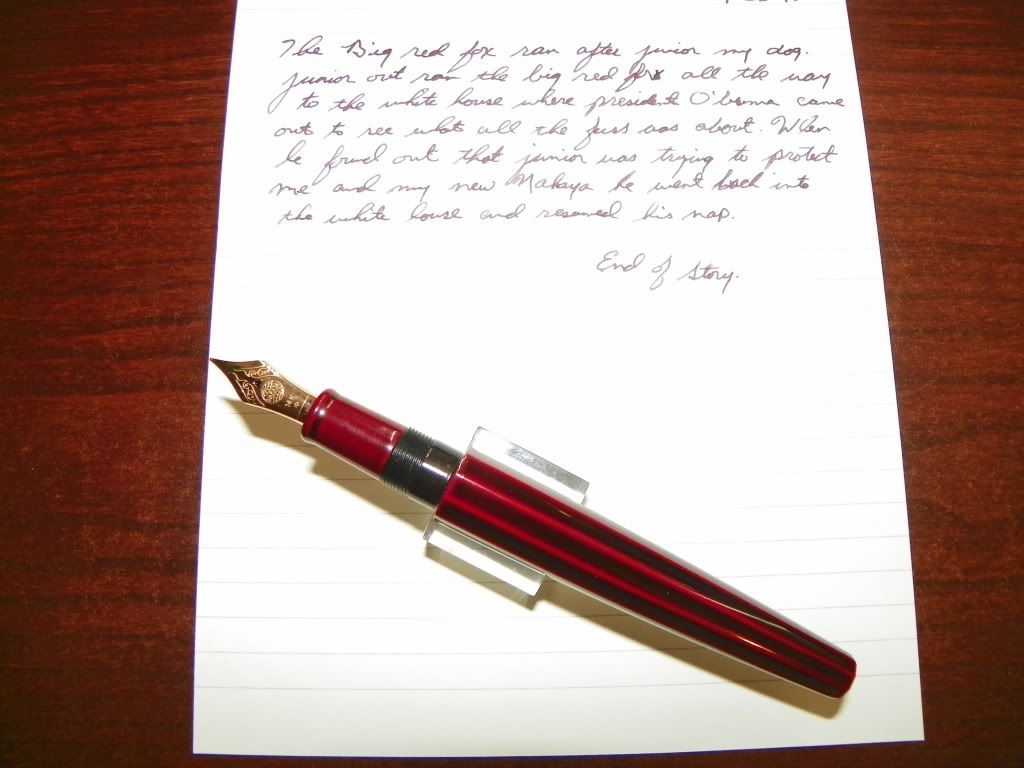 The Big red fox ran after junior my dog.
junior out ran the big red fox all the way
to the white house where president O'bama came
out to see what all the fuss was about. When
he found out that junior was trying to protect
me and my new Nakaya he went back into
the white house and resumed his nap.
End of Story.
14K